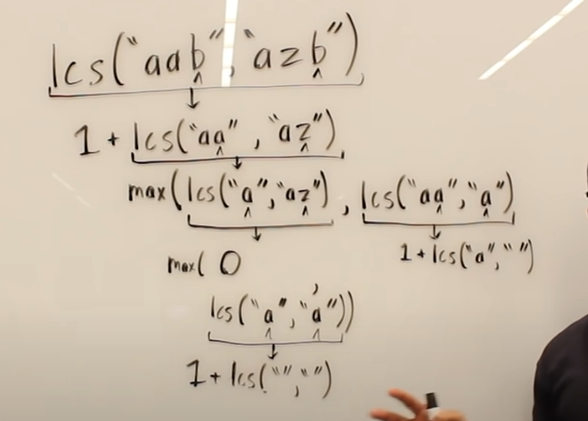 lcs("aab", "azb")
1 + lcs("aa", "az")
max(lcs("a","az"), lcs("aa","a")
max( 0 1+lcs("a","")
,
lcs("a","a"))
1 + lcs("","")